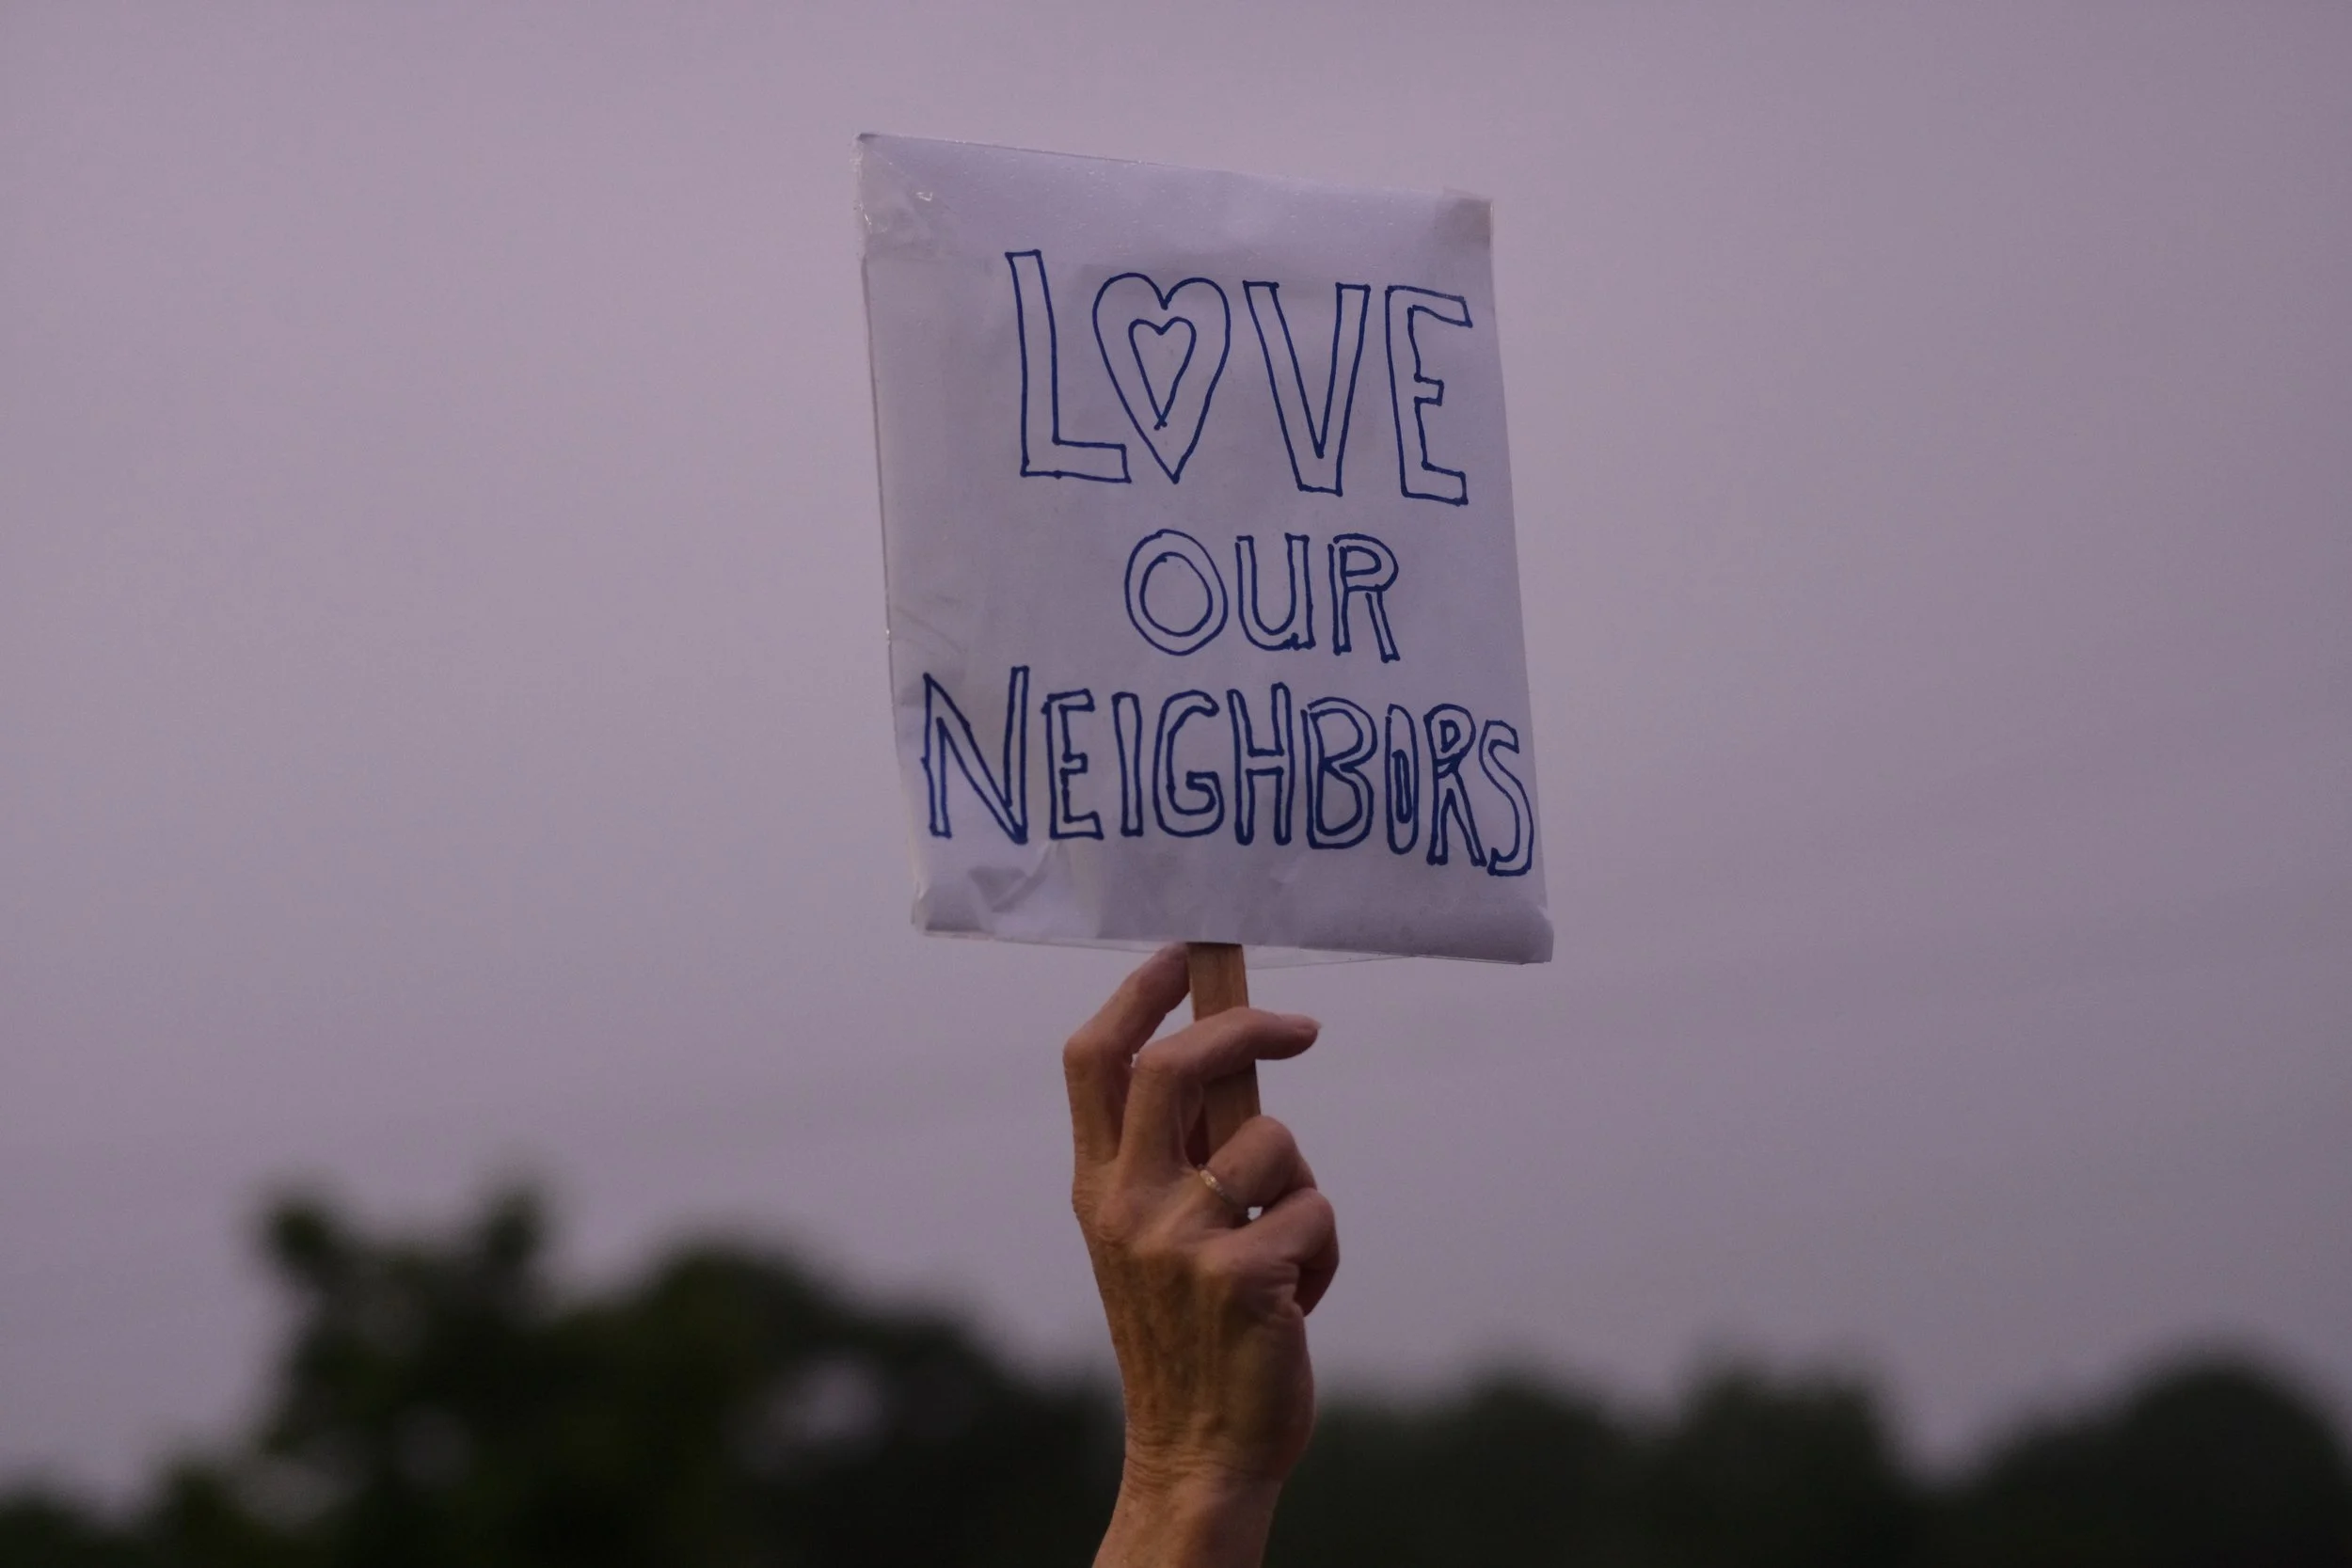 LOVE
OUR
NEIGHBORS